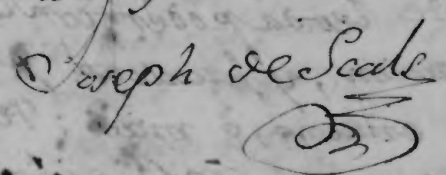 Joseph de Scals